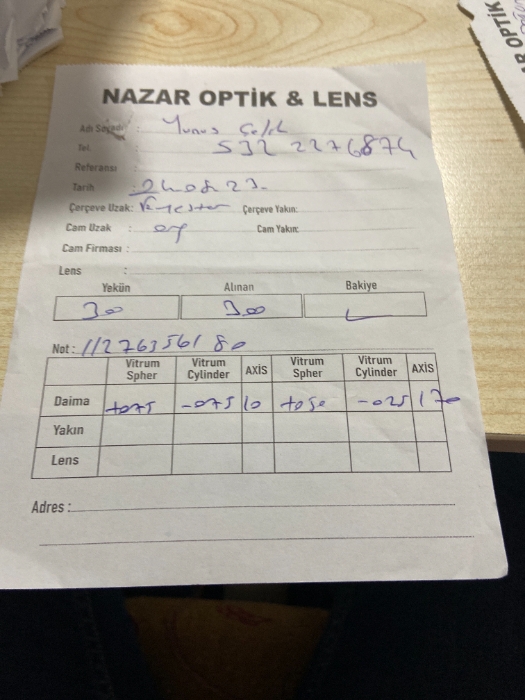 NAZAR OPTİK & LENS
Adı Soyadı : Yunus Çelik
Tel. 532 2276874
Referansı
Tarih
Çerçeve Uzak: Çerçeve Yakın:
Cam Uzak : Cam Yakın:
Cam Firması :
Lens :
Yekün Alınan Bakiye
300 300
Not: 11276356180
Vitrum Spher Vitrum Cylinder AXİS Vitrum Spher Vitrum Cylinder AXİS
Daima +075 -075 10 +050 -025 170
Yakın
Lens
Adres :
OPTİK